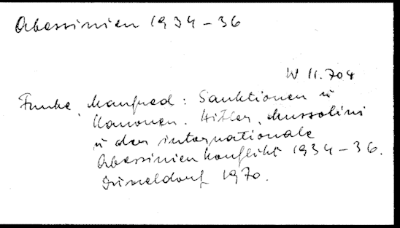 Abessinien 1934-36
W 11.704
Funke, Manfred: Sanktionen u
Kanonen. Hitler, Mussolini
u der internationale
Abessinienkonflikt 1934-36.
Düsseldorf 1970.